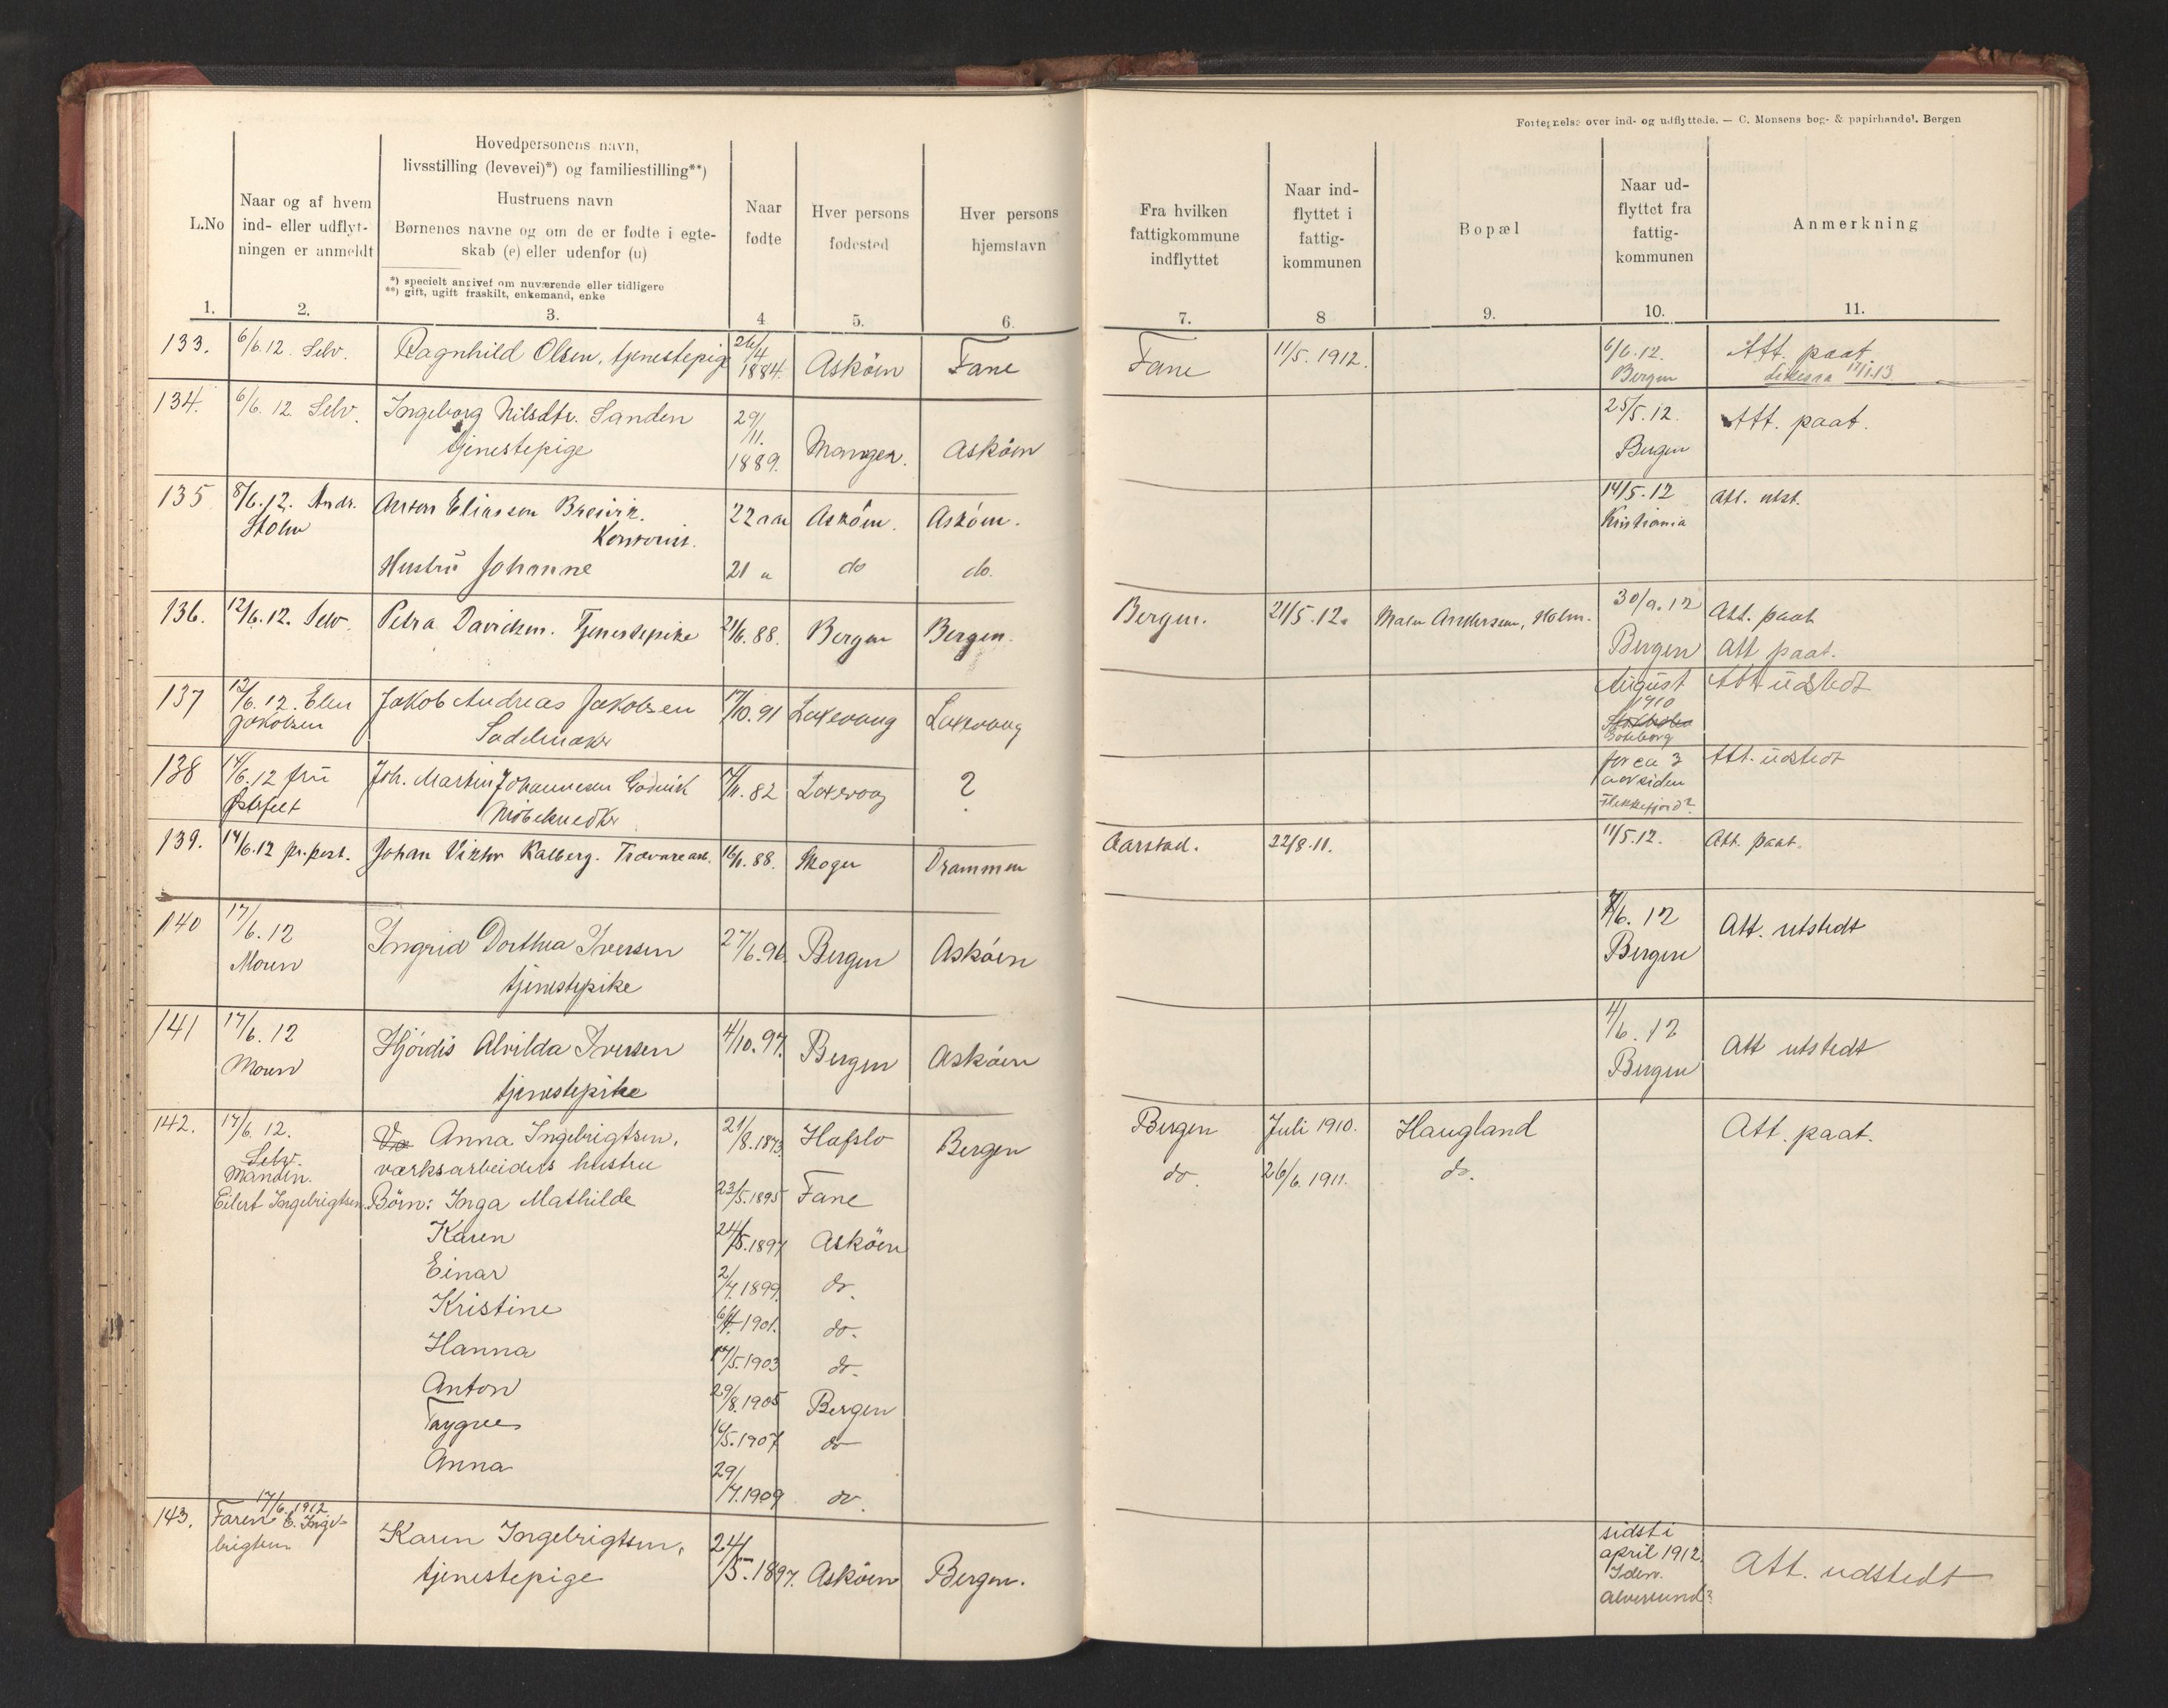 Fortegnelse over ind- og udflyttede. — C. Monsens bog- & papirhandel. Bergen
L.No
Naar og af hvem
ind- eller udflyt-
ningen er anmeldt
Hovedpersonens navn,
livsstilling (levevei)*) og familiestilling**)
Hustruens navn
Børnenes navne og om de er fødte i egte-
skab (e) eller udenfor (u)
*) specielt angivet om nuværende eller tidligere
**) gift, ugift fraskilt, enkemand, enke
Naar
fødte
Hver persons
fødested
Hver persons
hjemstavn
Fra hvilken
fattigkommune
indflyttet
Naar ind-
flyttet i
fattig-
kommunen
Bopæl
Naar ud-
flyttet fra
fattig-
kommunen
Anmerkning
1. 2. 3. 4 5. 6. 7. 8 9. 10. 11.
133. 6/6.12. Selv. Ragnhild Olsen, tjenestepige 26/4 1884. Askøen Fane Fane 11/5. 1912. 6/6.12. Att. paat.
Bergen 17/1.13.
134. 6/6. 12. Selv. Ingeborg Nilsdtr. Sanden 29/11. 1889. Manger. Askøen 25/5.12. Att. paat.
tjenestepige Bergen
135 8/6.12. Andr. Anton Eliassen Breivik. 22 aar Askøen. Askøen. 14/5.12 Att. utst.
Holm Kontorist. Kristiania
Hustru Johanne 21 " do do.
136. 12/6.12. Selv. Petra Davidsen. Tjenestepike 21/6.88. Bergen Bergen. Bergen. 21/5.12. Andersen, Holm. 30/9.12 Att. paat
Bergen Att paat.
137 12/6.12. Elen Jakob Andreas Jakobsen 17/10.91 Laxevaag Laxevaag August Att udstedt
Jakobsen Sadelmaker 1910
Goteborg
138 14/6.12 fru Joh. Martin Johannesen Godvik 82 Laxevaag ? for ca 3 Att. udstedt
Møbelsnedker aar siden
Flekkefjord?
139. 14/6.12 pr. post. Johan Viktor Kalberg. Trævarearb. 16/1.88. Skoger Drammen Aarstad. 22/8.11. 11/5.12. Att. paat.
140 17/6.12 Ingrid Dorthea Iversen 27/6.96 Bergen Askøen 7/6.12 Att. utstedt
Moren tjenestepike Bergen
141 17/6.12 Hjördis Alvilda Iversen 4/10.97. Bergen Askøen 4/6.12 Att utstedt
Moren tjenestepike Bergen
142. 17/6.12. Anna Ingebrigtsen, 21/8.1873. Hafslo Bergen Bergen Juli 1910. Haugland Att. paat.
Selv. verksarbeiders hustru do. 26/6.1911. do.
Manden.
Eilert Ingebrigtsen. Börn: Inga Mathilde 23/5.1895 Fane
Karen 24/5.1897 Askøen
Einar 2/7.1899. do.
Kristine 1901. do.
Hanna 17/5.1903 do.
Anton 29/8.1905 Bergen
Trygve 1907 do
Anna 29/7.1909 do.
143. 17/6.1912 Karen Ingebrigtsen, 24/5.1897. Askøen Bergen. sidst i Att. udstedt
Faren E. Inge- tjenestepige april 1912.
brigtsen Alversund?